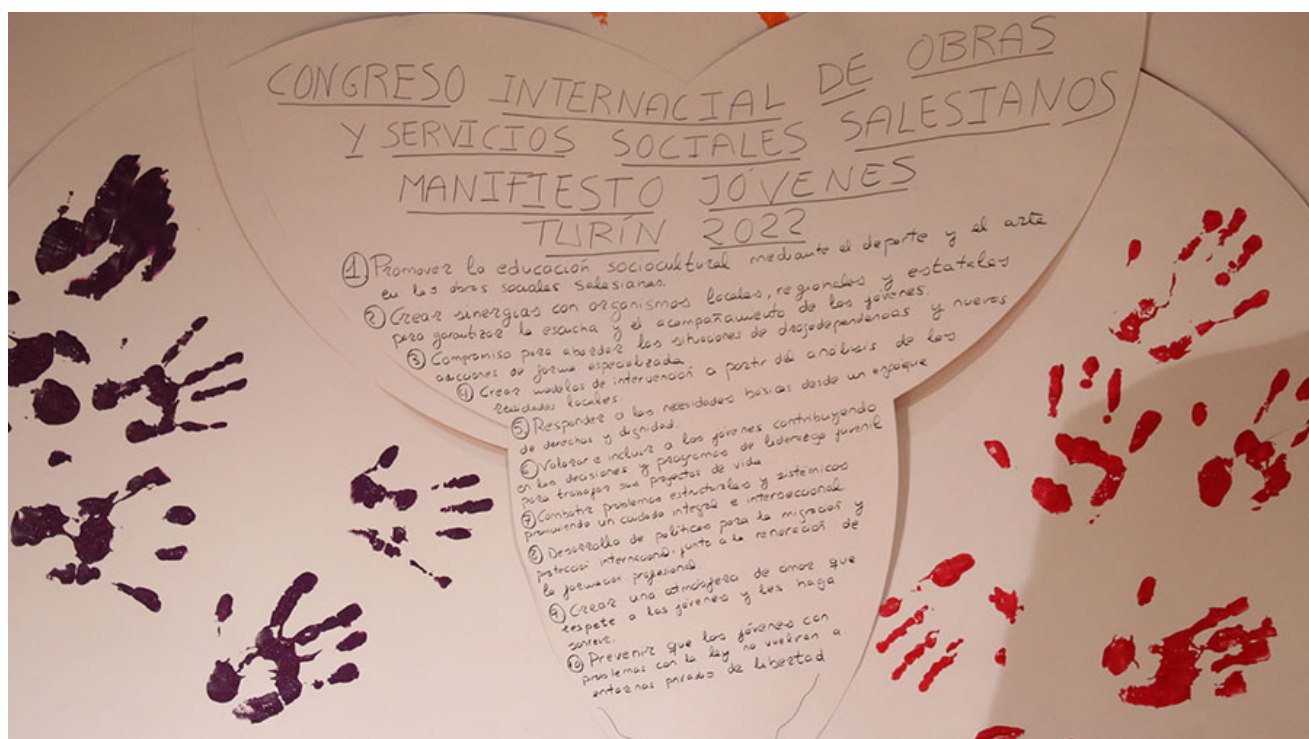 CONGRESO INTERNACIAL DE OBRAS
Y SERVICIOS SOCIALES SALESIANOS
MANIFIESTO JÓVENES
TURÍN 2022
1 Promover la educación sociocultural mediante el deporte y el arte
en las obras sociales Salesianas.
2 Crear sinergias con organismos locales, regionales y estatales
para garantizar la escucha y el acompañamiento de los jóvenes.
3 Compromiso para abordar las situaciones de drogodependencias y nuevas
adicciones de forma especializada
4 Crear modelos de intervención a partir del análisis de las
realidades locales.
5. Responder a las necesidades básicas desde un enfoque
de derechos y dignidad.
6 Valorar e incluir a los jóvenes contribuyendo
en las decisiones y programas de liderazgo juvenil
para trabajar sus proyectos de vida
7 Combatir problemas estructurales y sistémicos
promoviendo un cuidado integral e interseccional
8 Desarrollo de políticas para la migración y
protección internacional, junto a la renovación de
la formación profesional.
9 Crear una atmósfera de amor que
respete a los jóvenes y les haga
sonreír.
10 Prevenir que los jóvenes con
problemas con la ley no vuelvan a
entornos privados de libertad